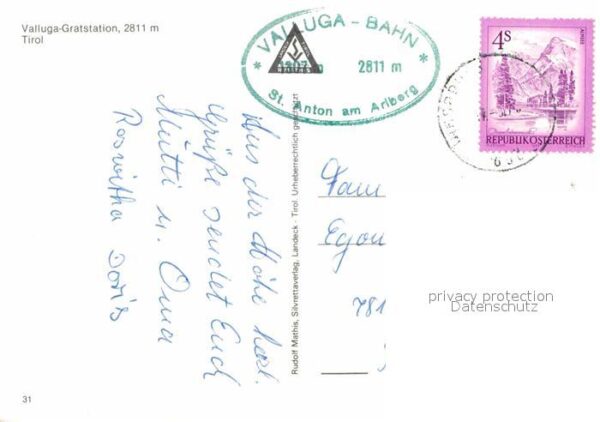 Valluga-Gratstation, 2811 m
Tirol
* VALLUGA - BAHN *
2811 m
St. Anton am Arlberg
4s
REPUBLIK ÖSTERREICH
Aus der Höhe herzl.
Grüße sendet Euch
Mutti u. Oma
Roswitha Doris
Rudolf Mathis, Silvrettaverlag, Landeck - Tirol. Urheberrechtlich geschützt
Fam
Egon
781
privacy protection
Datenschutz
31